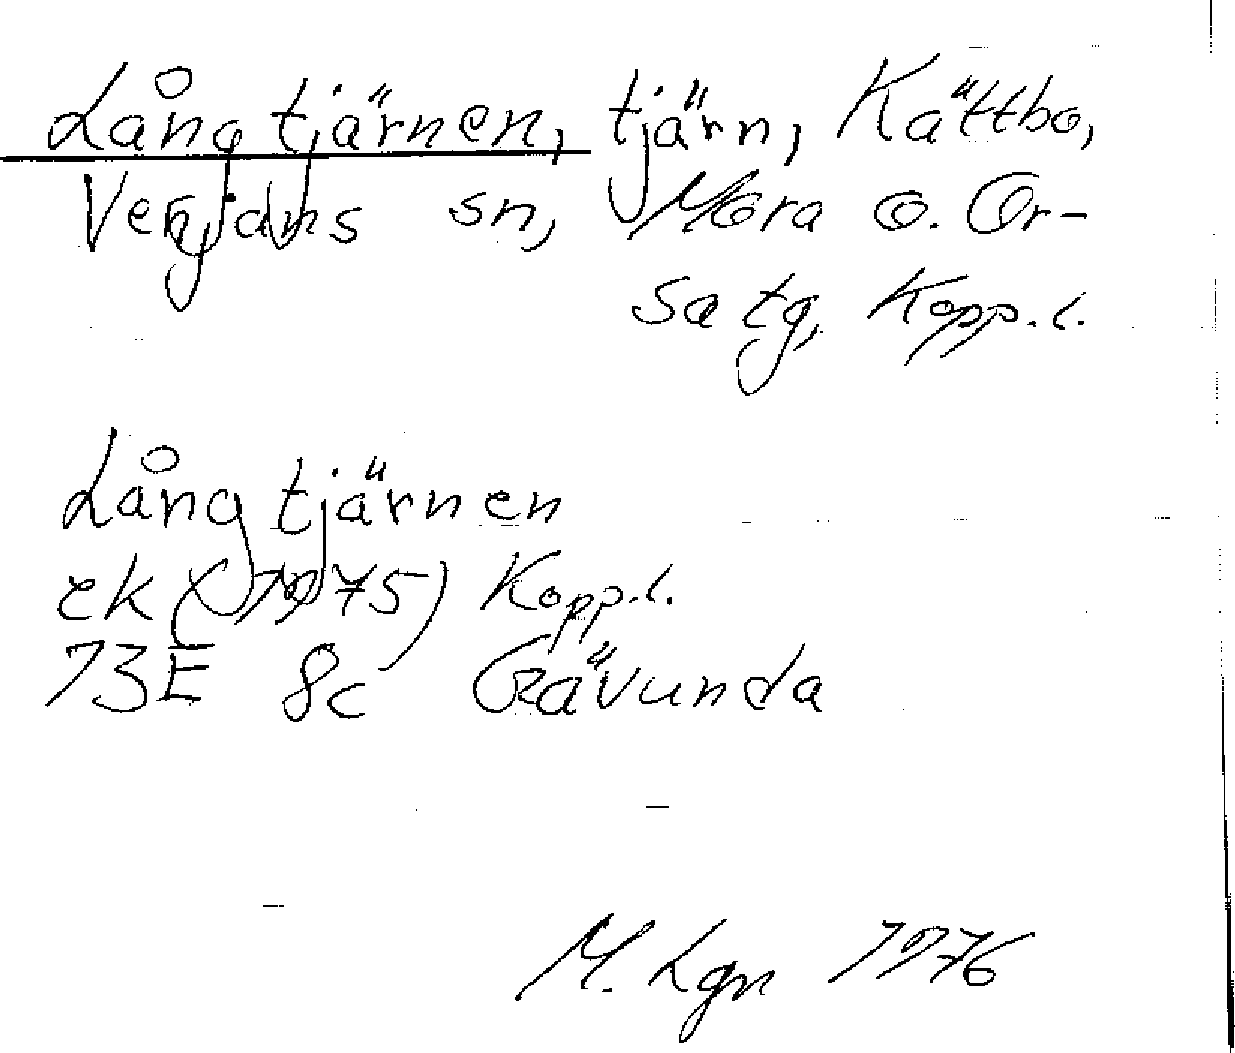 Långtjärnen, tjärn, Kättbo,
Venjans sn, Mora o. Or-
sa tg, Kopp. l.
Långtjärnen
ek (1975) Kopp. l.
13E 8c Gävunda
M. Lgn 1976